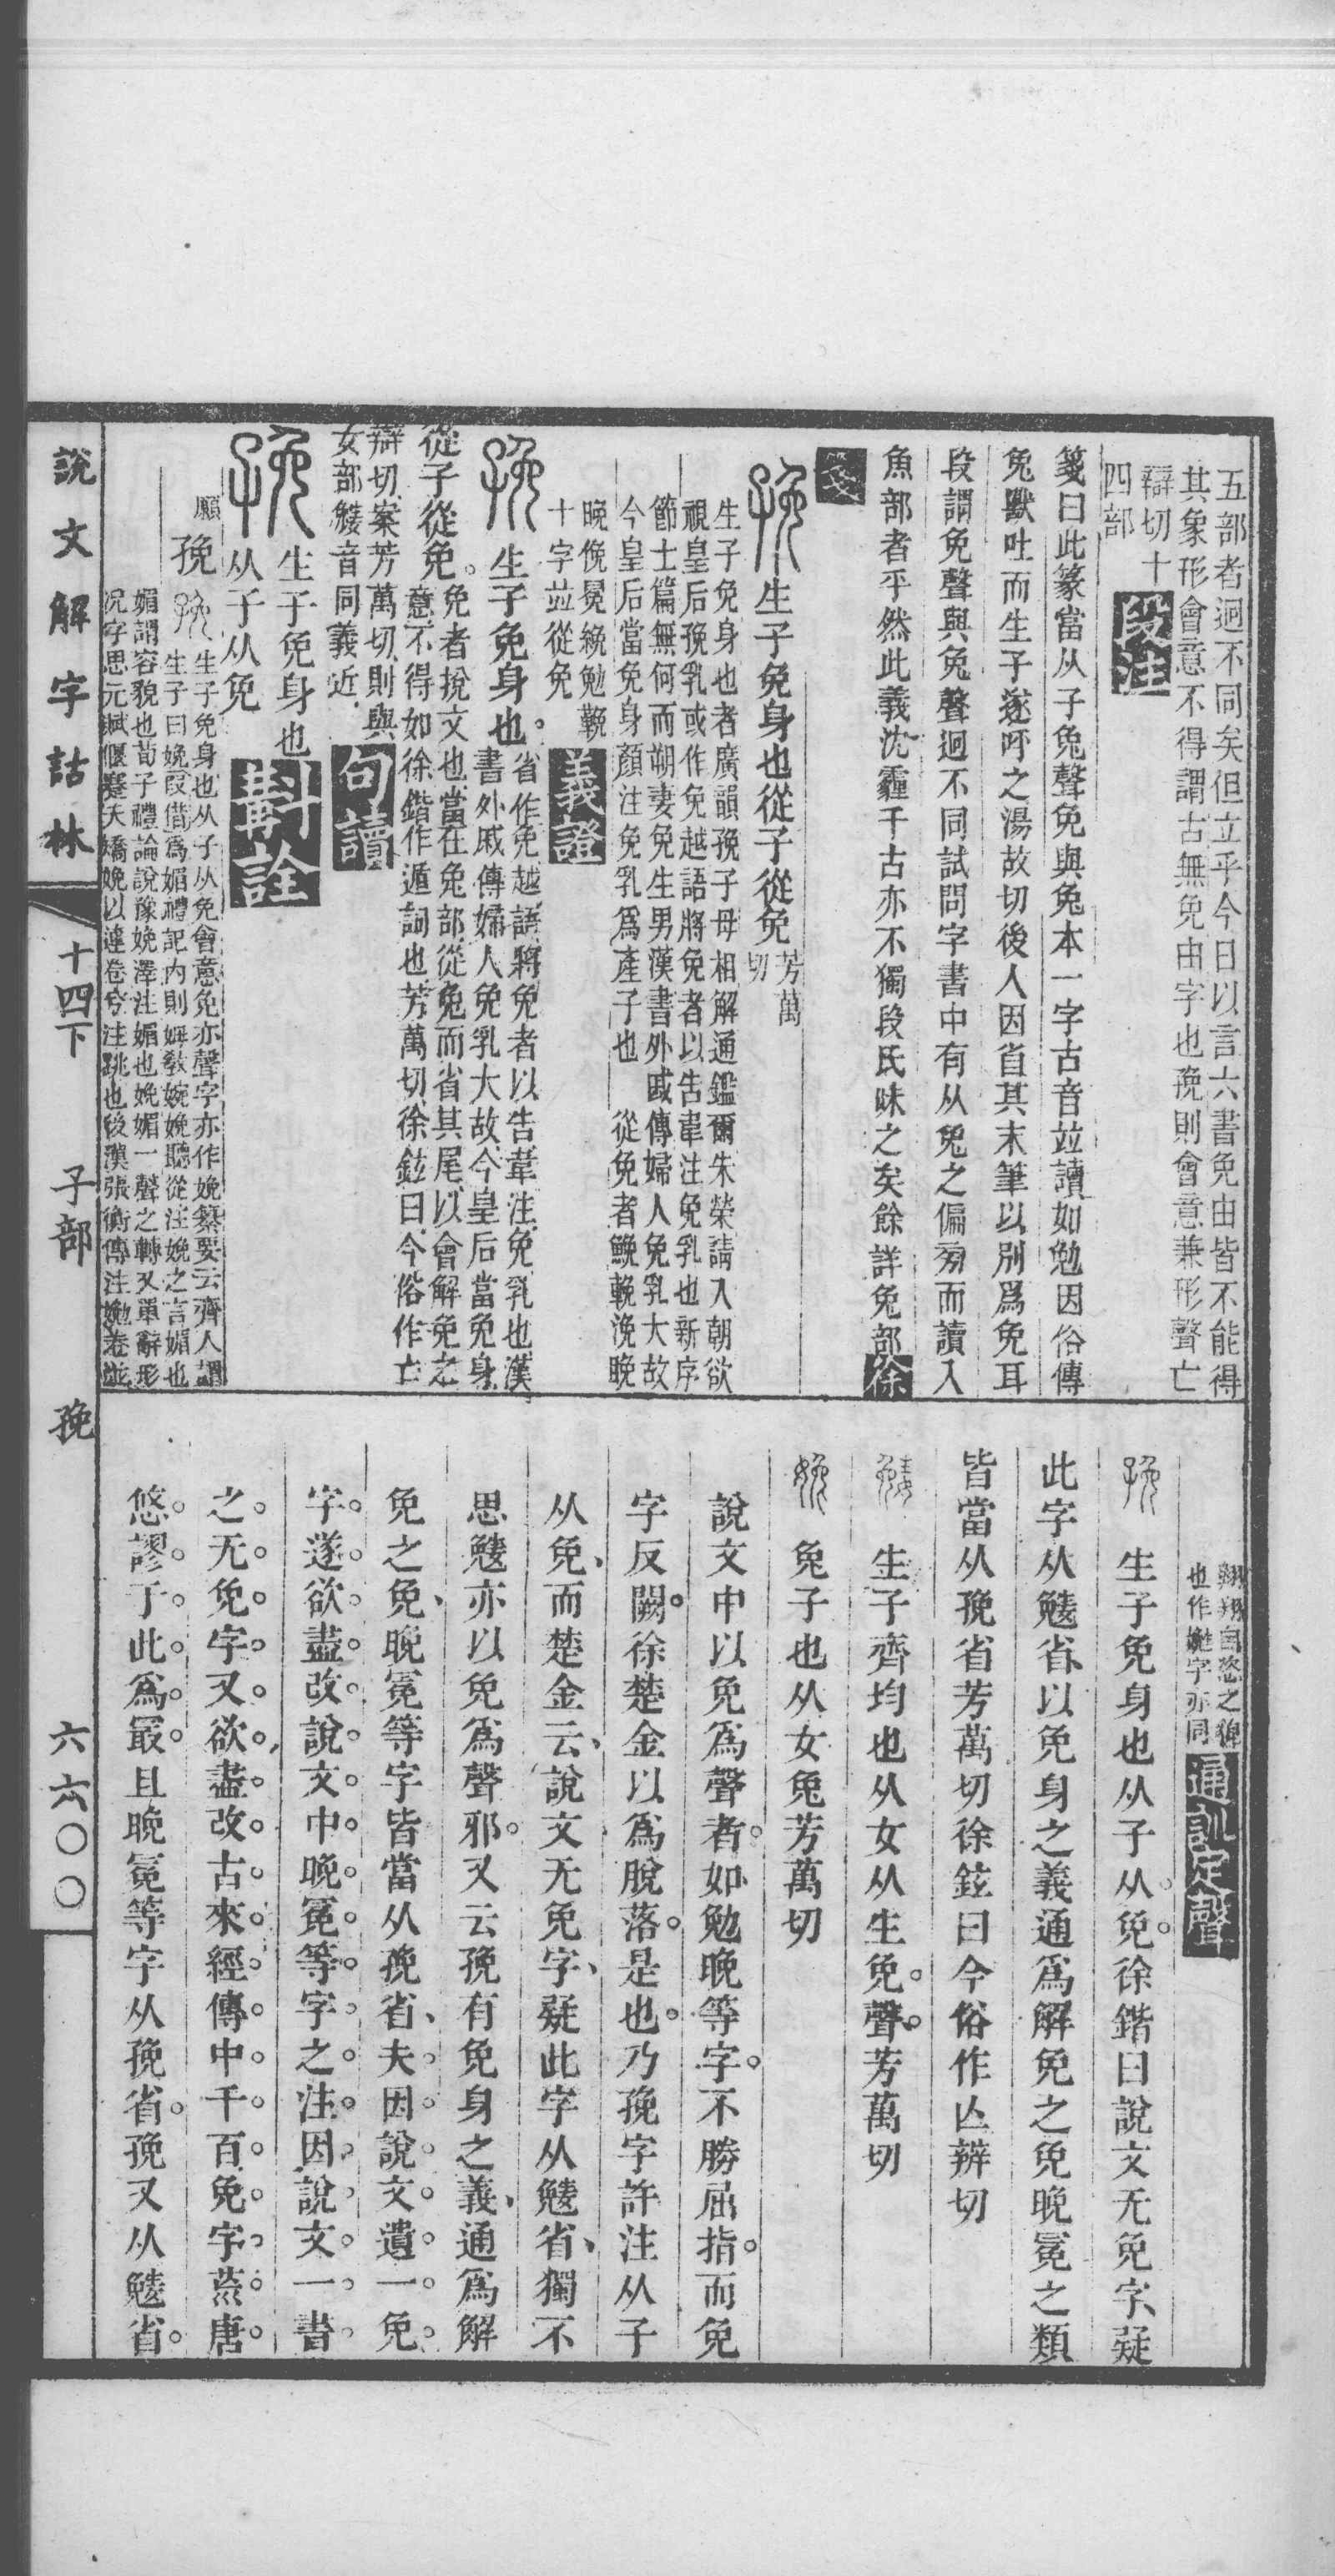 五部者迥不同矣但立乎今日以言六書免由皆不能得
其象形會意不得謂古無免由字也㝃則會意兼形聲亡
辯切十
四部
段注
箋曰此篆當从子兔聲免與兔本一字古音竝讀如勉因俗傳
兔獸吐而生子遂呼之湯故切後人因省其末筆以別爲免耳
段謂免聲與兔聲迥不同試問字書中有从兔之偏旁而讀入
魚部者乎然此義沈霾千古亦不獨段氏昧之矣餘詳兔部
徐箋
生子免身也從子從免
芳萬
切
生子免身也者廣韻㝃子母相解通鑑爾朱榮請入朝欲
視皇后㝃乳或作免越語將免者以告韋注免乳也新序
節士篇無何而朔妻免生男漢書外戚傳婦人免乳大故
今皇后當免身顏注免乳爲產子也　從免者鮸輓浼晚
晚俛冕絻勉鞔
十字竝從免
義證
生子免身也。
省作免越語將免者以告韋注免乳也漢
書外戚傳婦人免乳大故今皇后當免身
從子從免。
免者挩文也當在兔部從兔而省其尾以會解免之
意不得如徐鍇作遁詞也芳萬切徐鉉曰今俗作亡
辯切案芳萬切則與
女部㝹音同義近
句讀
生子免身也
从子从免
斠詮
願
㝃
生子免身也从子从免會意免亦聲字亦作娩纂要云齊人謂
生子曰娩叚借爲媚禮記內則姆敎婉娩聽從注娩之言媚也
媚謂容貌也荀子禮論說豫娩澤注媚也娩媚一聲之轉又單辭形
況字思元賦偃蹇夭矯娩以連卷兮注跳也後漢張衡傳注
翱翔自恣之貌
也作字亦同
通訓定聲
生子免身也从子从免。徐鍇曰說文无免字、疑
此字从㝹省、以免身之義通爲解免之免晚冕之類
皆當从㝃省芳萬切徐鉉曰今俗作亾辨切
生子齊均也从女从生免。聲。芳萬切
兔子也从女兔芳萬切
說文中以免爲聲者。如勉晚等字。不勝屈指。而免
字反闕。徐楚金以爲脫落。是也。乃㝃字許注从子
从免、而楚金云、說文无免字、疑此字从㝹省、獨不
思㝹亦以免爲聲邪。又云㝃有免身之義、通爲解
免之免、晚冕等字皆當从㝃省、夫因。說。文。遺。一。免。
字。遂。欲。盡。改。說。文。中。晚。冕。等。字。之。注。因。說。文。一。書。
之。无。免。字。又。欲。盡。改。古。來。經。傳。中。千。百。免。字。蒸。唐。
悠。謬。于。此。爲。冣。且晚冕等字从㝃省。㝃又从㝹省。
說文解字詁林
十四下　子部　㝃　六六〇〇